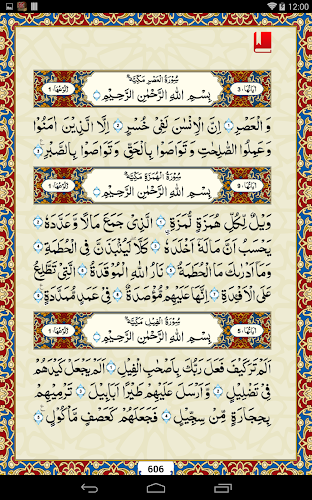 12:00
سُورَةُ الْعَصْرِ مَكِّيَّةٌ
بِسْمِ اللهِ الرَّحْمٰنِ الرَّحِيْمِ
وَ الْعَصْرِ اِنَّ الْاِنْسٰنَ لَفِيْ خُسْرٍ اِلَّا الَّذِيْنَ اٰمَنُوْا
وَعَمِلُوا الصّٰلِحٰتِ وَ تَوَاصَوْا بِالْحَقِّ وَ تَوَاصَوْا بِالصَّبْرِ
سُورَةُ الْهُمَزَةِ مَكِّيَّةٌ
بِسْمِ اللهِ الرَّحْمٰنِ الرَّحِيْمِ
وَيْلٌ لِّكُلِّ هُمَزَةٍ لُّمَزَةٍ الَّذِيْ جَمَعَ مَالًا وَّ عَدَّدَهٗ
يَحْسَبُ اَنَّ مَالَهٗٓ اَخْلَدَهٗ كَلَّا لَيُنْۢبَذَنَّ فِي الْحُطَمَةِ
وَمَآ اَدْرٰىكَ مَا الْحُطَمَةُ نَارُ اللهِ الْمُوْقَدَةُ الَّتِيْ تَطَّلِعُ
عَلَى الْاَفْـِٕدَةِ اِنَّهَا عَلَيْهِمْ مُّؤْصَدَةٌ فِيْ عَمَدٍ مُّمَدَّدَةٍ
سُورَةُ الْفِيلِ مَكِّيَّةٌ
بِسْمِ اللهِ الرَّحْمٰنِ الرَّحِيْمِ
اَلَمْ تَرَ كَيْفَ فَعَلَ رَبُّكَ بِاَصْحٰبِ الْفِيْلِ اَلَمْ يَجْعَلْ كَيْدَهُمْ
فِيْ تَضْلِيْلٍ وَّ اَرْسَلَ عَلَيْهِمْ طَيْرًا اَبَابِيْلَ تَرْمِيْهِمْ
بِحِجَارَةٍ مِّنْ سِجِّيْلٍ فَجَعَلَهُمْ كَعَصْفٍ مَّاْكُوْلٍ
606